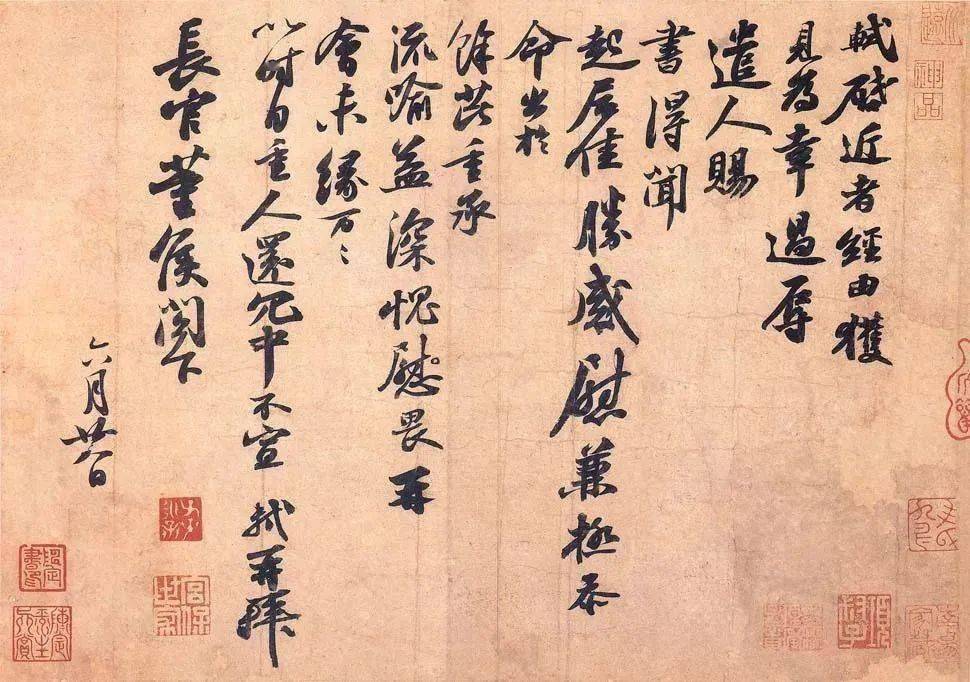 軾啓近者經由獲
見為幸過辱
遣人賜
書得聞
起居佳勝感慰兼極忝
命出於
餘芘重承
流喻益深愧慰畏再
會未緣万〻
以時自重人還冗中不宣 軾再拜
長官董侯閣下
六月廿八日
神品
宮保世家